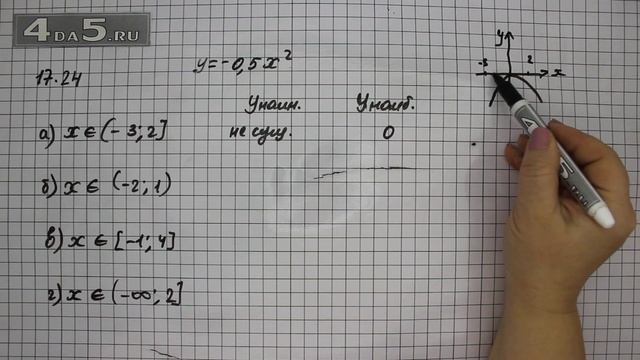 4DA5.RU
17.24
y=-0,5x²
y
-3 2
x
Унаим. Унаиб.
а) x ∈ (-3; 2] не сущ. 0
б) x ∈ (-2; 1)
в) x ∈ [-1; 4]
г) x ∈ (-∞; 2]